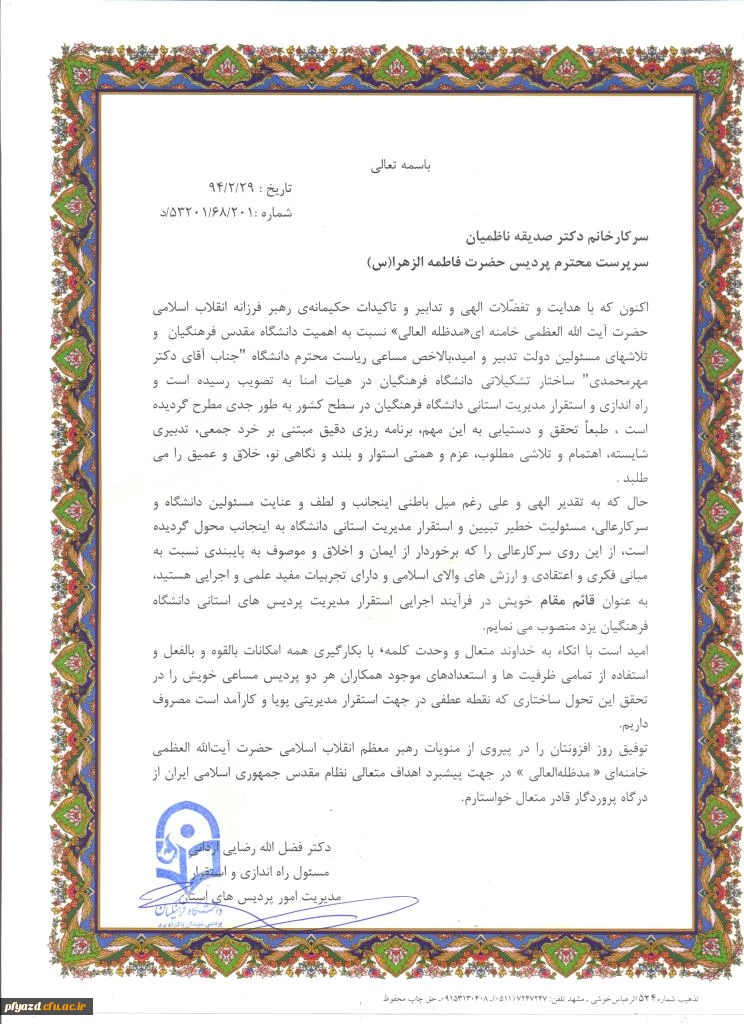 باسمه تعالی
تاریخ : ۹۴/۲/۲۹
شماره :۵۳۲۰۱/۶۸/۲۰۱/د
سرکارخانم دکتر صدیقه ناظمیان
سرپرست محترم پردیس حضرت فاطمه الزهرا(س)
اکنون که با هدایت و تفضّلات الهی و تدابیر و تاکیدات حکیمانه‌ی رهبر فرزانه انقلاب اسلامی
حضرت آیت الله العظمی خامنه ای«مدظله العالی» نسبت به اهمیت دانشگاه مقدس فرهنگیان و
تلاشهای مسئولین دولت تدبیر و امید،بالاخص مساعی ریاست محترم دانشگاه "جناب آقای دکتر
مهرمحمدی" ساختار تشکیلاتی دانشگاه فرهنگیان در هیات امنا به تصویب رسیده است و
راه اندازی و استقرار مدیریت استانی دانشگاه فرهنگیان در سطح کشور به طور جدی مطرح گردیده
است ، طبعاً تحقق و دستیابی به این مهم، برنامه ریزی دقیق مبتنی بر خرد جمعی، تدبیری
شایسته، اهتمام و تلاشی مطلوب، عزم و همتی استوار و بلند و نگاهی نو، خلاق و عمیق را می
طلبد .
حال که به تقدیر الهی و علی رغم میل باطنی اینجانب و لطف و عنایت مسئولین دانشگاه و
سرکارعالی، مسئولیت خطیر تبیین و استقرار مدیریت استانی دانشگاه به اینجانب محول گردیده
است، از این روی سرکارعالی را که برخوردار از ایمان و اخلاق و موصوف به پایبندی نسبت به
مبانی فکری و اعتقادی و ارزش های والای اسلامی و دارای تجربیات مفید علمی و اجرایی هستید،
به عنوان قائم مقام خویش در فرآیند اجرایی استقرار مدیریت پردیس های استانی دانشگاه
فرهنگیان یزد منصوب می نمایم.
امید است با اتکاء به خداوند متعال و وحدت کلمه، با بکارگیری همه امکانات بالقوه و بالفعل و
استفاده از تمامی ظرفیت ها و استعدادهای موجود همکاران هر دو پردیس مساعی خویش را در
تحقق این تحول ساختاری که نقطه عطفی در جهت استقرار مدیریتی پویا و کارآمد است مصروف
داریم.
توفیق روز افزونتان را در پیروی از منویات رهبر معظم انقلاب اسلامی حضرت آیت‌الله العظمی
خامنه‌ای « مدظله‌العالی » در جهت پیشبرد اهداف متعالی نظام مقدس جمهوری اسلامی ایران از
درگاه پروردگار قادر متعال خواستارم.
دکتر فضل الله رضایی اردانی
مسئول راه اندازی و استقرار
مدیریت امور پردیس های استان
دانشگاه فرهنگیان
پردیس شهیدان پاکنژاد یزد
تذهیب شماره ۵۲۴ اثر عباس خوشی ـ مشهد تلفن: ۷۲۴۷۲۴۷ (۰۵۱۱)ـ ۰۹۱۵۳۱۳۰۴۰۸ـ حق چاپ محفوظ
pfyazd.cfu.ac.ir